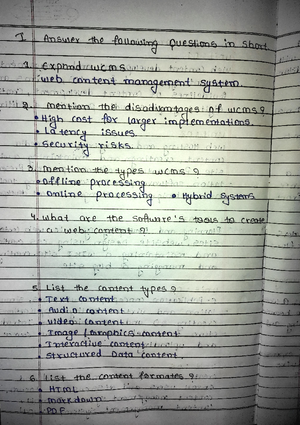 I Answer the following Questions in short
1. Expand WCMS
web content management system.
2. mention the disadvantages of wcms?
• High cost for larger implementations.
• Latency issues
• Security risks.
3. mention the types wcms?
• offline processing
• online processing • Hybrid systems
4. what are the software's tools to create
a web content?
5. List the content types?
• Text content
• Audio content
• video content
• Image / graphics content
• Interactive content
• Structured Data content.
6. List the content formates?
• HTML
• markdown
• PDF